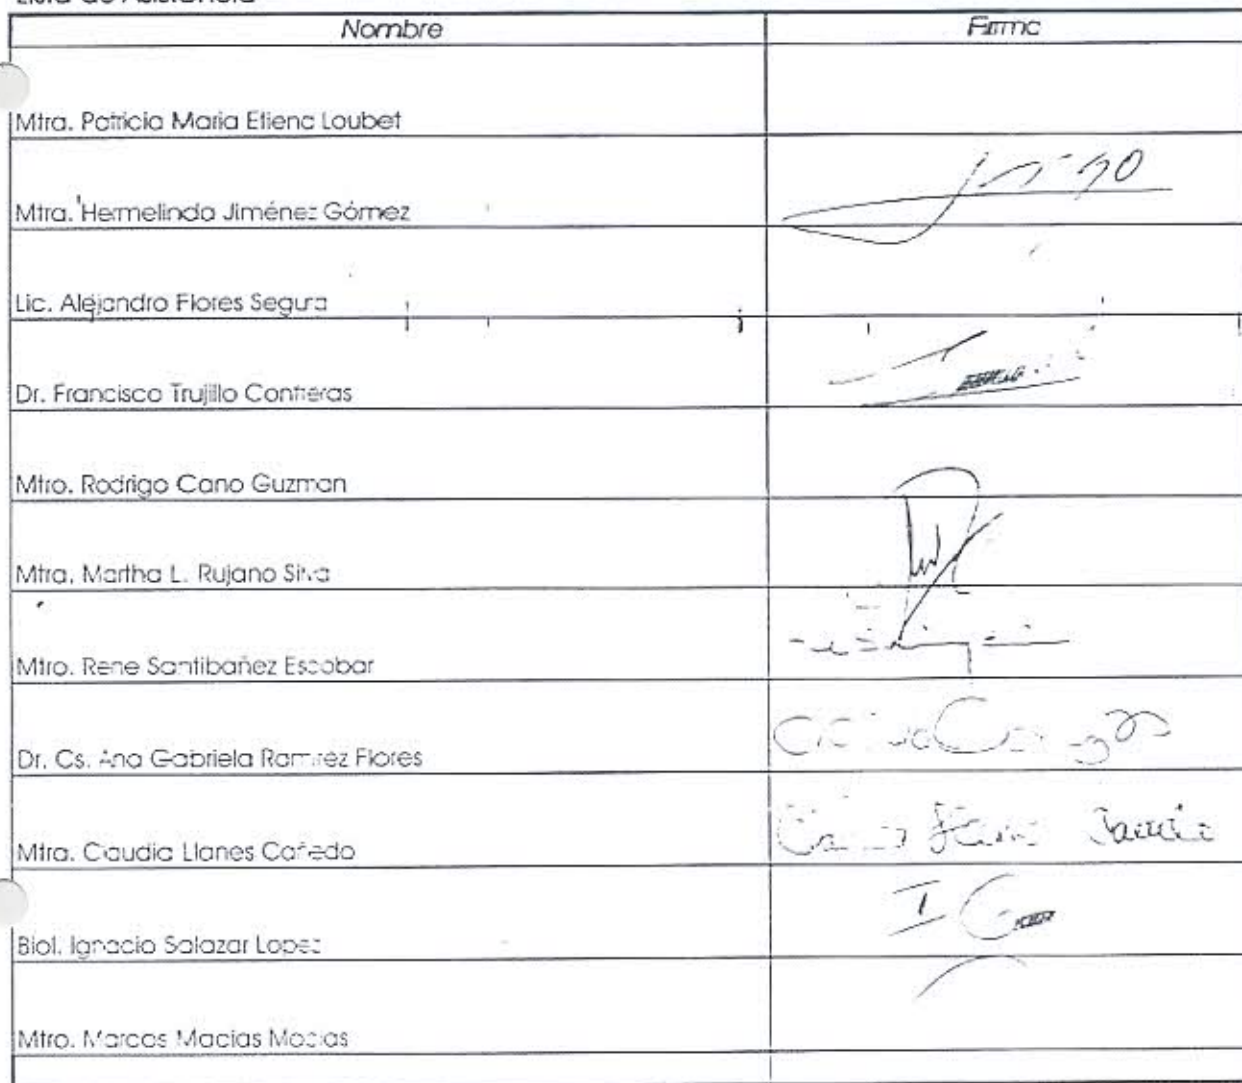 Lista de Asistencia
Nombre
Firma
Mtra. Patricia Maria Etienc Loubet
Mtra. Hermelinda Jiménez Gómez
Lic. Alejandro Flores Segura
Dr. Francisco Trujillo Contreras
Mtro. Rodrigo Cano Guzman
Mtra. Martha L. Rujano Silva
Mtro. Rene Santibañez Escobar
Dr. Cs. Ana Gabriela Ramirez Flores
Mtra. Claudia Llanes Cañedo
Biol. Ignacio Salazar Lopez
Mtro. Marcos Macias Macias